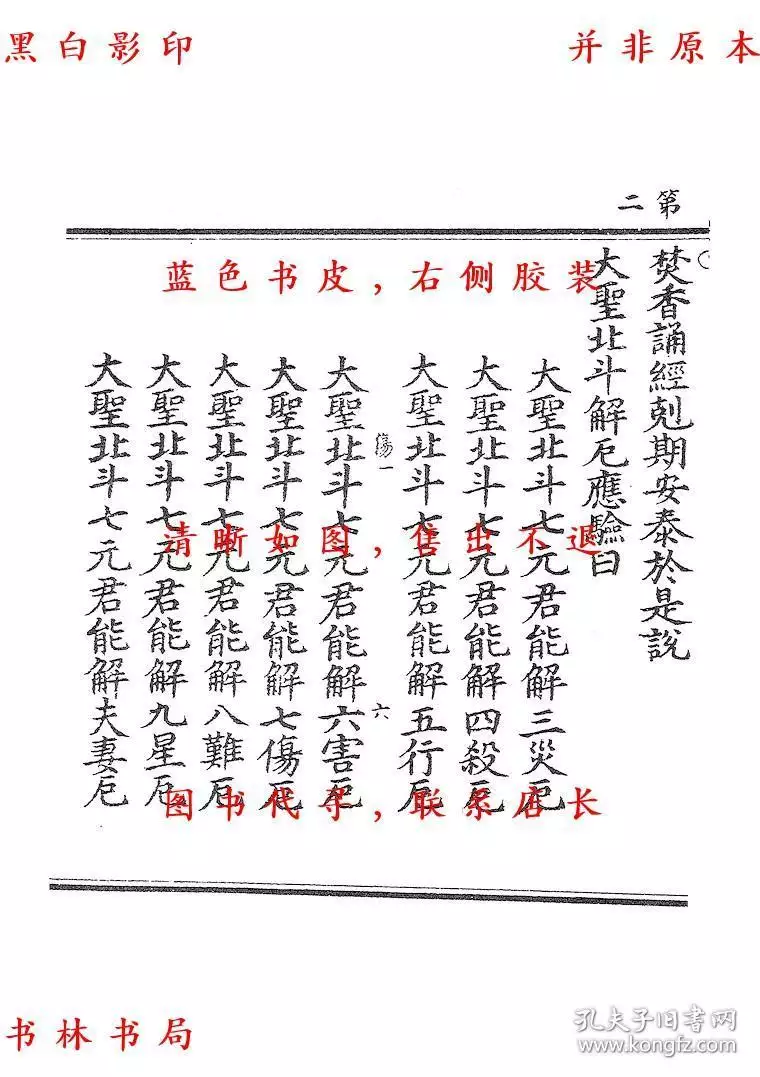 黑白影印
并非原本
第二
焚香誦經剋期安泰於是說
大聖北斗解厄應驗曰
大聖北斗七元君能解三災厄
大聖北斗七元君能解四殺厄
大聖北斗七元君能解五行厄
傷一
六
大聖北斗七元君能解六害厄
大聖北斗七元君能解七傷厄
大聖北斗七元君能解八難厄
大聖北斗七元君能解九星厄
大聖北斗七元君能解夫妻厄
蓝色书皮，右侧胶装
清晰如图，售出不退
图书代寻，联系店长
书林书局
孔夫子旧书网
www.kongfz.com